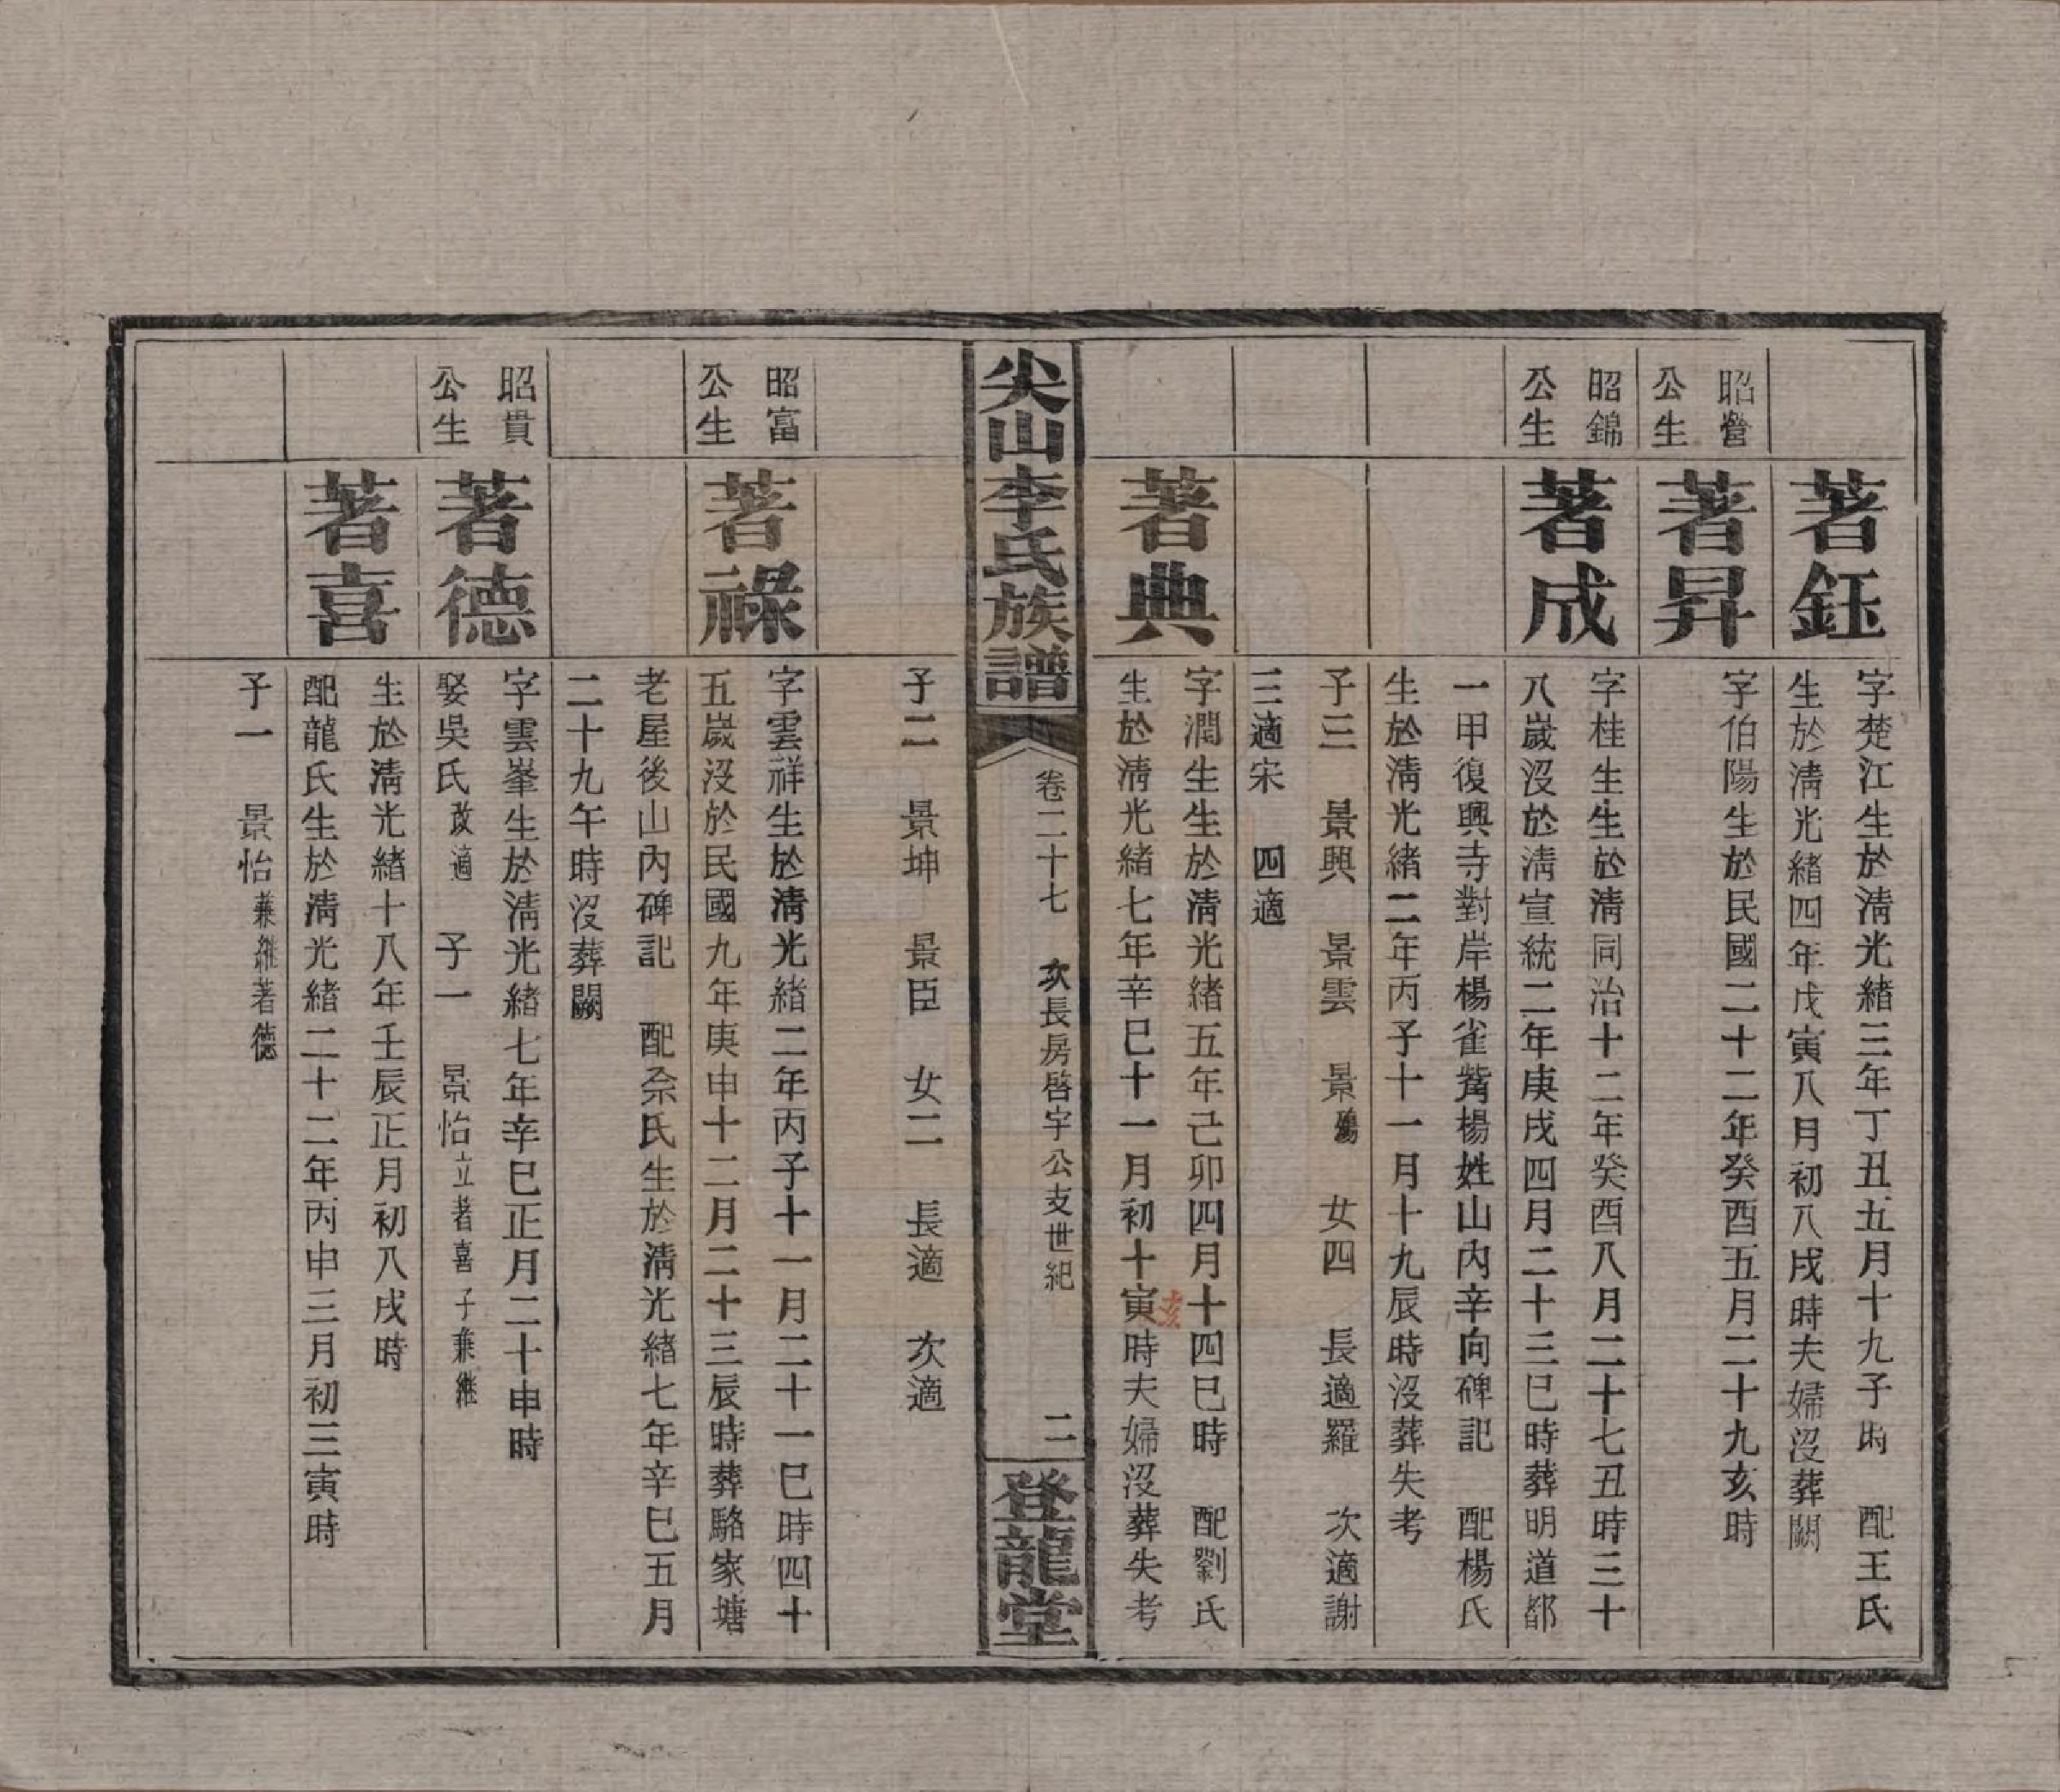 著鈺
字楚江生於淸光緖三年丁丑五月十九子時　配王氏
生於淸光緖四年戊寅八月初八戌時夫婦沒葬闕
昭營
公生
著昇
字伯陽生於民國二十二年癸酉五月二十九亥時
昭錦
公生
著成
字桂生生於淸同治十二年癸酉八月二十七丑時三十
八歲沒於淸宣統二年庚戌四月二十三巳時葬明道都
一甲復興寺對岸楊雀嘴楊姓山內辛向碑記　配楊氏
生於淸光緖二年丙子十一月十九辰時沒葬失考
子三　景興　景雲　景　女四　長適羅　次適謝
三適宋　四適
著典
字潤生生於淸光緖五年己卯四月十四巳時　配劉氏
亥
生於淸光緖七年辛巳十一月初十寅時夫婦沒葬失考
尖山李氏族譜
卷二十七　次長房啓宇公支世紀
二
登龍堂
子二　景坤　景臣　女二　長適　次適
昭富
公生
著祿
字雲祥生於淸光緖二年丙子十一月二十一巳時四十
五歲沒於民國九年庚申十二月二十三辰時葬駱家塘
老屋後山內碑記　配佘氏生於淸光緖七年辛巳五月
二十九午時沒葬闕
昭貴
公生
著德
字雲峯生於淸光緖七年辛巳正月二十申時
娶吳氏改適　子一　景怡立著喜子兼繼
著喜
生於淸光緖十八年壬辰正月初八戌時
配龍氏生於淸光緖二十二年丙申三月初三寅時
子一　景怡兼繼著德